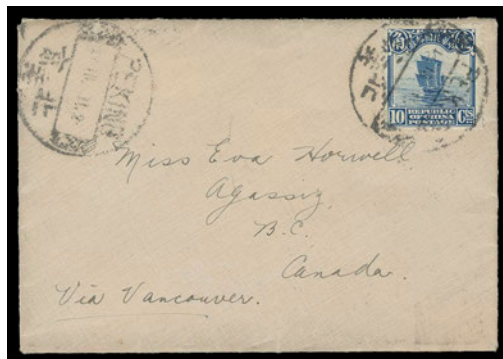 PEKING
REPUBLIC
OF CHINA
POSTAGE
10 Cts
Miss Eva Horwell
Agassiz
B.C.
Canada.
Via Vancouver.